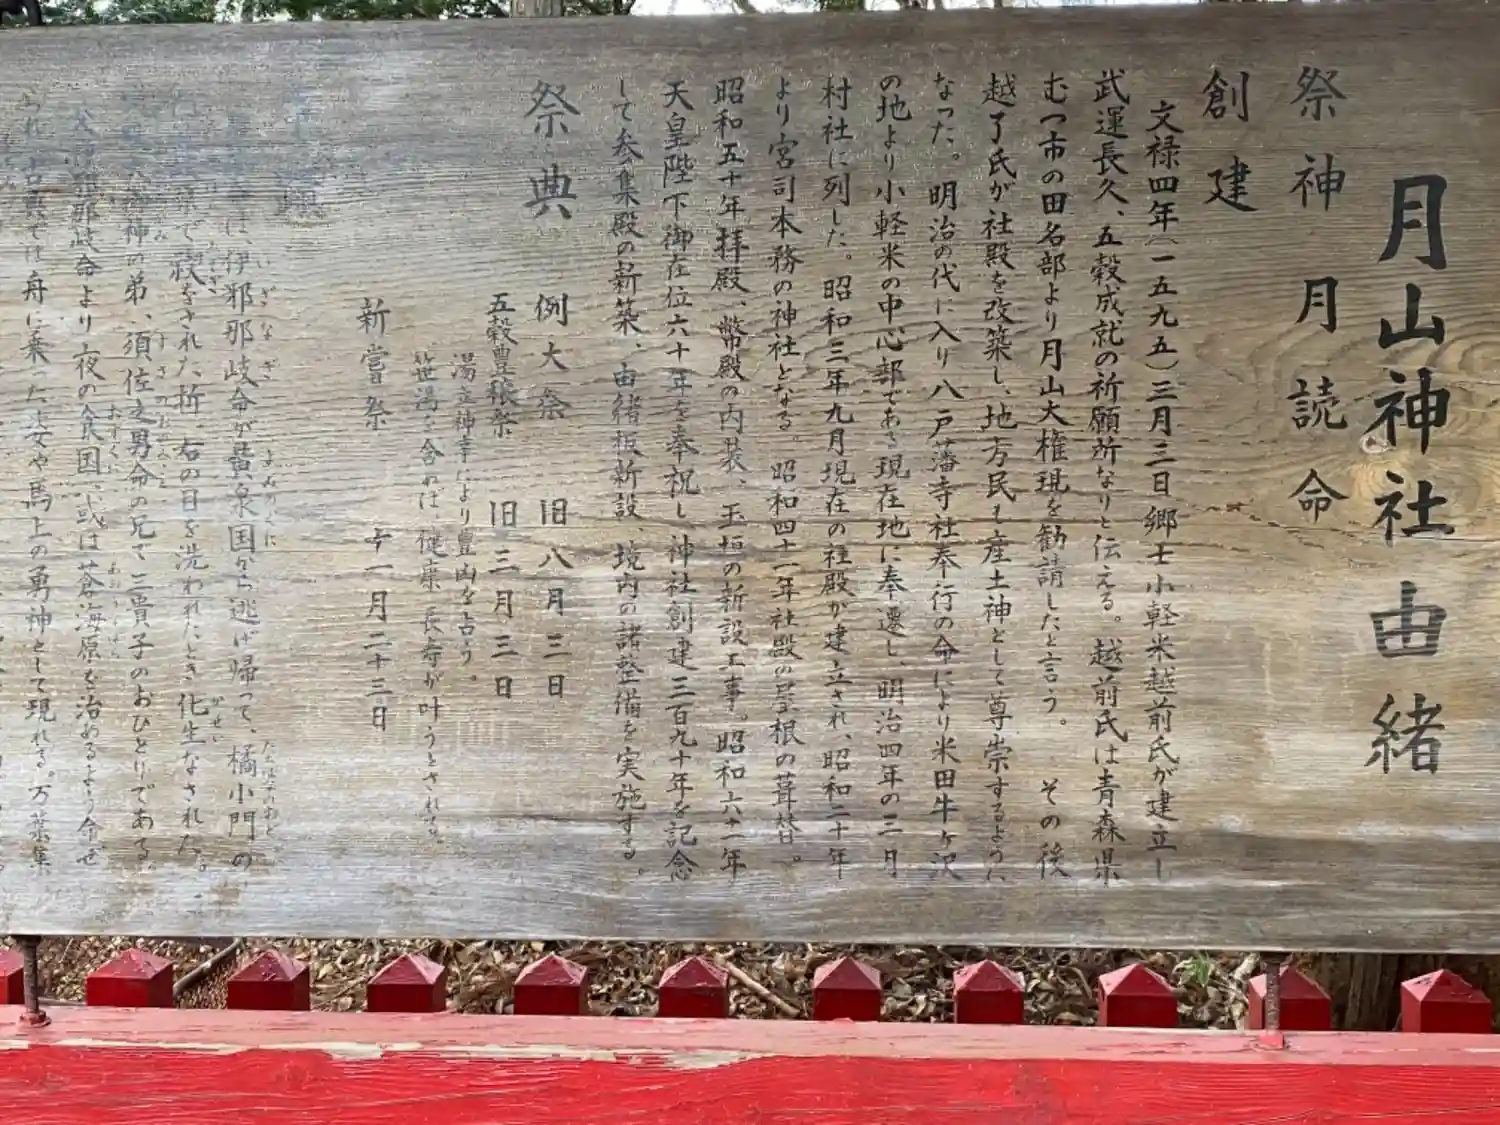 月山神社由緒
祭神 月読命
創建
文禄四年(一五九五)三月三日郷士小軽米越前氏が建立し
武運長久、五穀成就の祈願所なりと伝える。越前氏は青森県
むつ市の田名部より月山大権現を勧請したと言う。 その後
越了氏が社殿を改築し、地方民も産土神として尊崇するように
なった。明治の代に入り八戸藩寺社奉行の命により米田牛ヶ沢
の地より小軽米の中心部である現在地に奉遷し、明治四年の三月
村社に列した。昭和三年九月現在の社殿が建立され、昭和二十年
より宮司本務の神社となる。昭和四十一年社殿の屋根の葺替。
昭和五十年拝殿、幣殿の内装、玉垣の新設工事。昭和六十一年
天皇陛下御在位六十年を奉祝し神社創建三百九十年を記念
して参集殿の新築、由緒板新設 境内の諸整備を実施する。
祭典 例大祭 旧八月三日
五穀豊穣祭 旧三月三日
湯立神事により豊凶を占う。
笹湯を含れば、健康、長寿が叶うとされる。
新嘗祭 十一月二十三日
は、伊邪那岐命が黄泉国から逃げ帰って、橘小門の
で禊をされた折 右の目を洗われたとき化生なされた。
神の弟、須佐之男命の兄で三貴子のおひとりである。
那岐命より夜の食国、或は蒼海原を治めるよう命ぜ
られ 古典では舟に乗った姿や馬上の勇神として現れる。万葉集